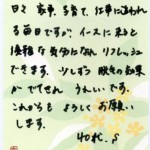 日々 家事、子育て、仕事に追われ
る毎日ですが、イースに来ると
優雅な気分になり リフレッシュ
できます。少しずつ 脱毛の効果
が でてきて うれしいです。
これからも よろしくお願い
します。
40代 S